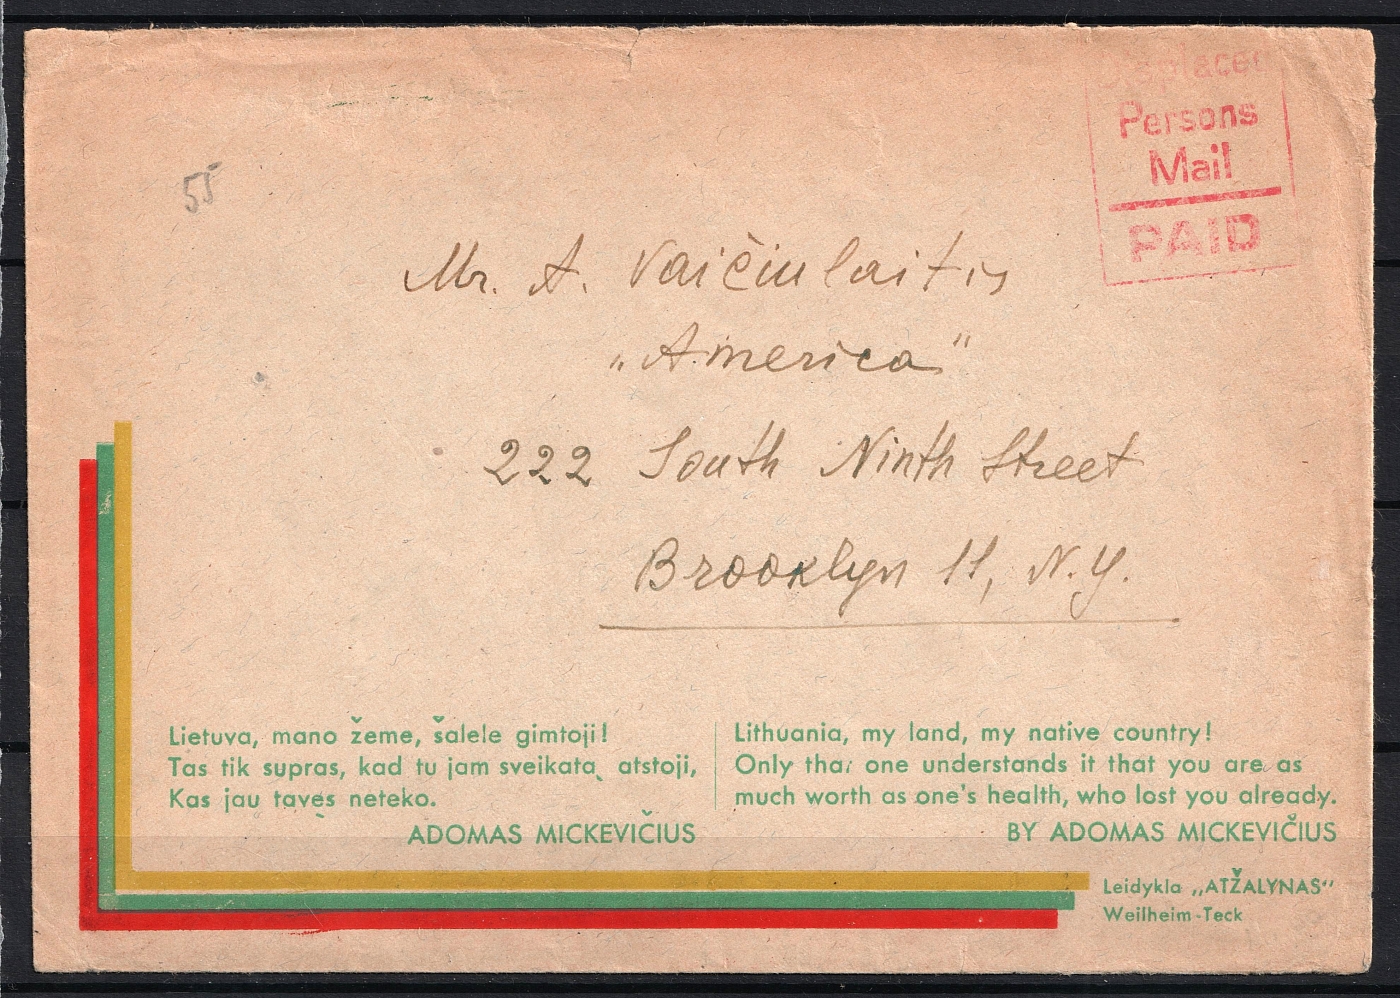 Displaced
Persons
Mail
PAID
55
Mr. A. Vaičiulaitis
„America"
222 South Ninth Street
Brooklyn 11, N.Y.
Lietuva, mano žeme, šalele gimtoji!
Tas tik supras, kad tu jam sveikatą atstoji,
Kas jau tavęs neteko.
ADOMAS MICKEVIČIUS
Lithuania, my land, my native country!
Only that one understands it that you are as
much worth as one's health, who lost you already.
BY ADOMAS MICKEVIČIUS
Leidykla „ATŽALYNAS"
Weilheim-Teck